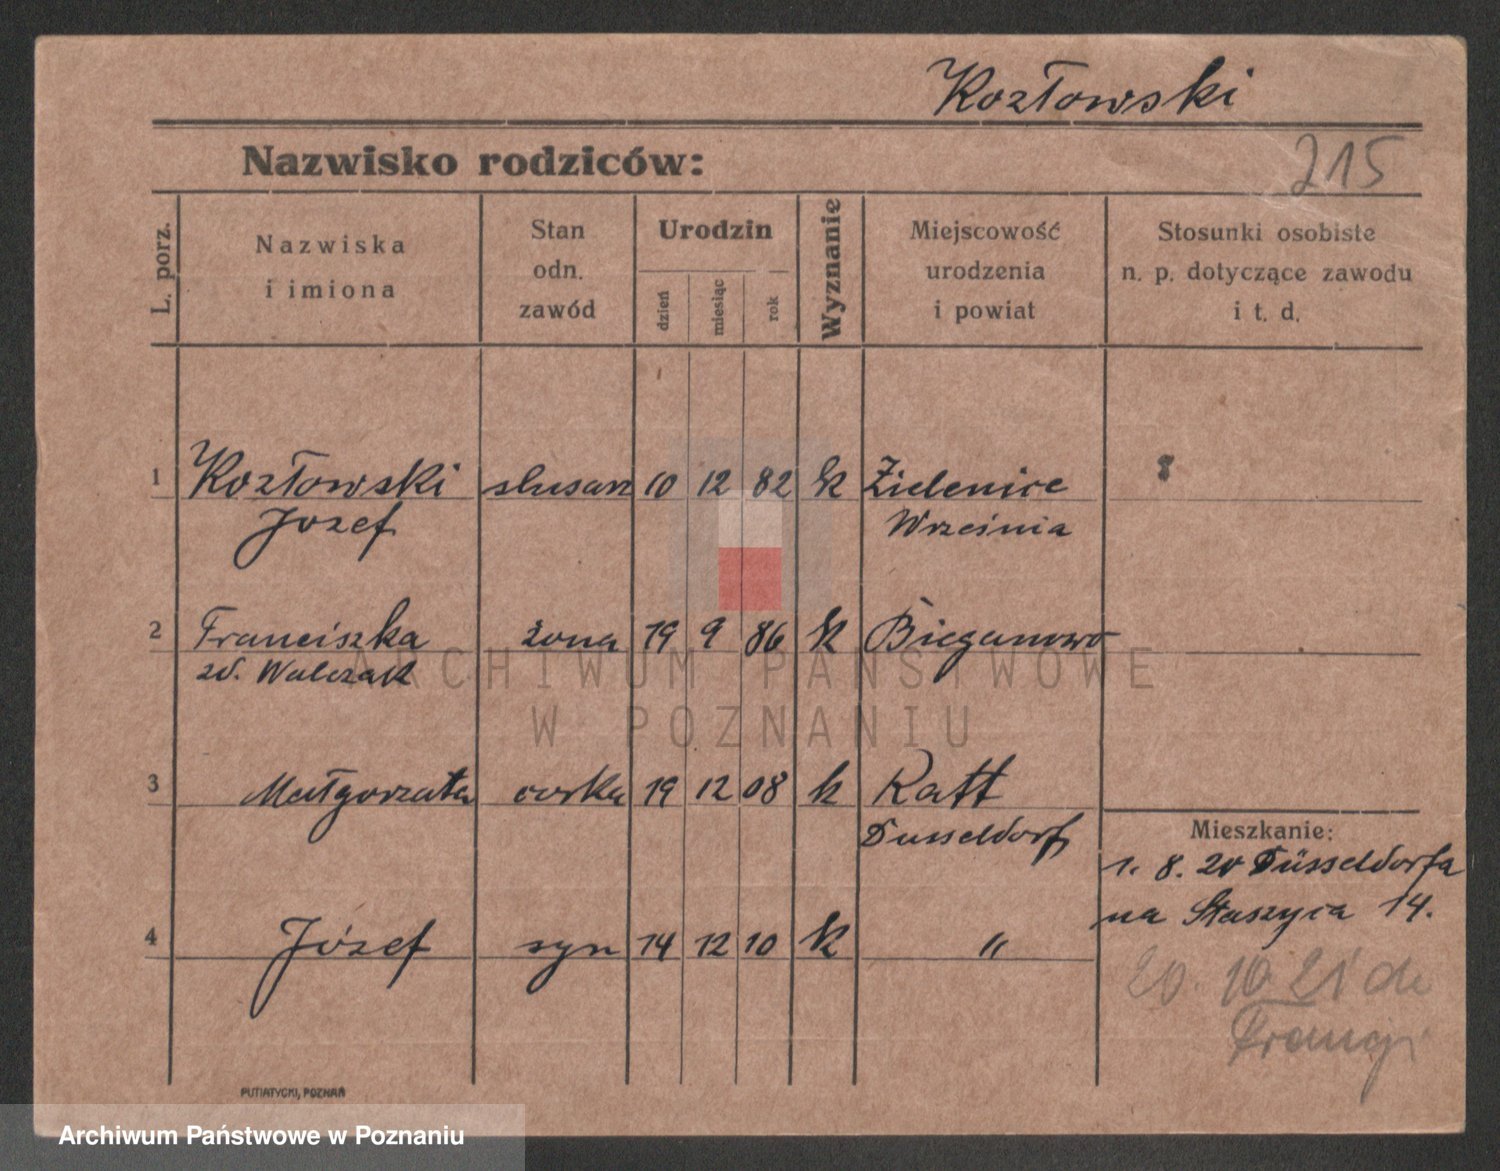 Kozłowski
Nazwisko rodziców:
215
L. porz.
Nazwiska
i imiona
Stan
odn.
zawód
Urodzin
dzień
miesiąc
rok
Wyznanie
Miejscowość
urodzenia
i powiat
Stosunki osobiste
n. p. dotyczące zawodu
i t. d.
1 Kozłowski slusarz 10 12 82 k Zielenice
Jozef Września
2 Franciszka żona 19 9 86 k Bieganowo
zd. Walczak
ARCHIWUM PAŃSTWOWE
W POZNANIU
3 Małgorzata corka 19 12 08 k Ratt
Dusseldorf
Mieszkanie:
1. 8. 20 Düsseldorfa
na Staszyca 14.
4 Józef syn 14 12 10 k "
20. 10 21 do
Francji
PUTIATYCKI, POZNAŃ
Archiwum Państwowe w Poznaniu